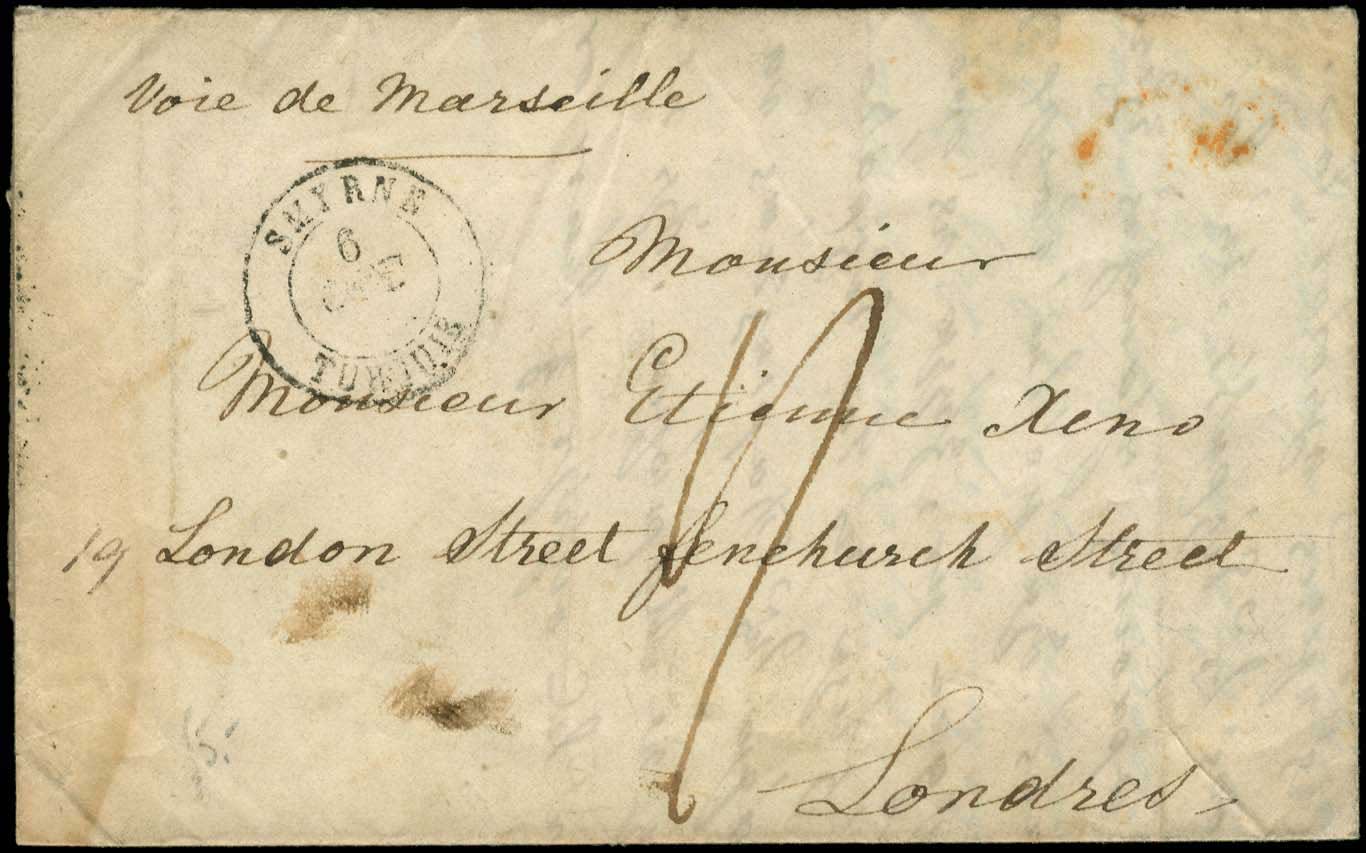 Voie de Marseille
SMYRNE
6
TURQUIE
Monsieur
Monsieur Etienne Xeno
19 London Street fenchurch Street
Londres